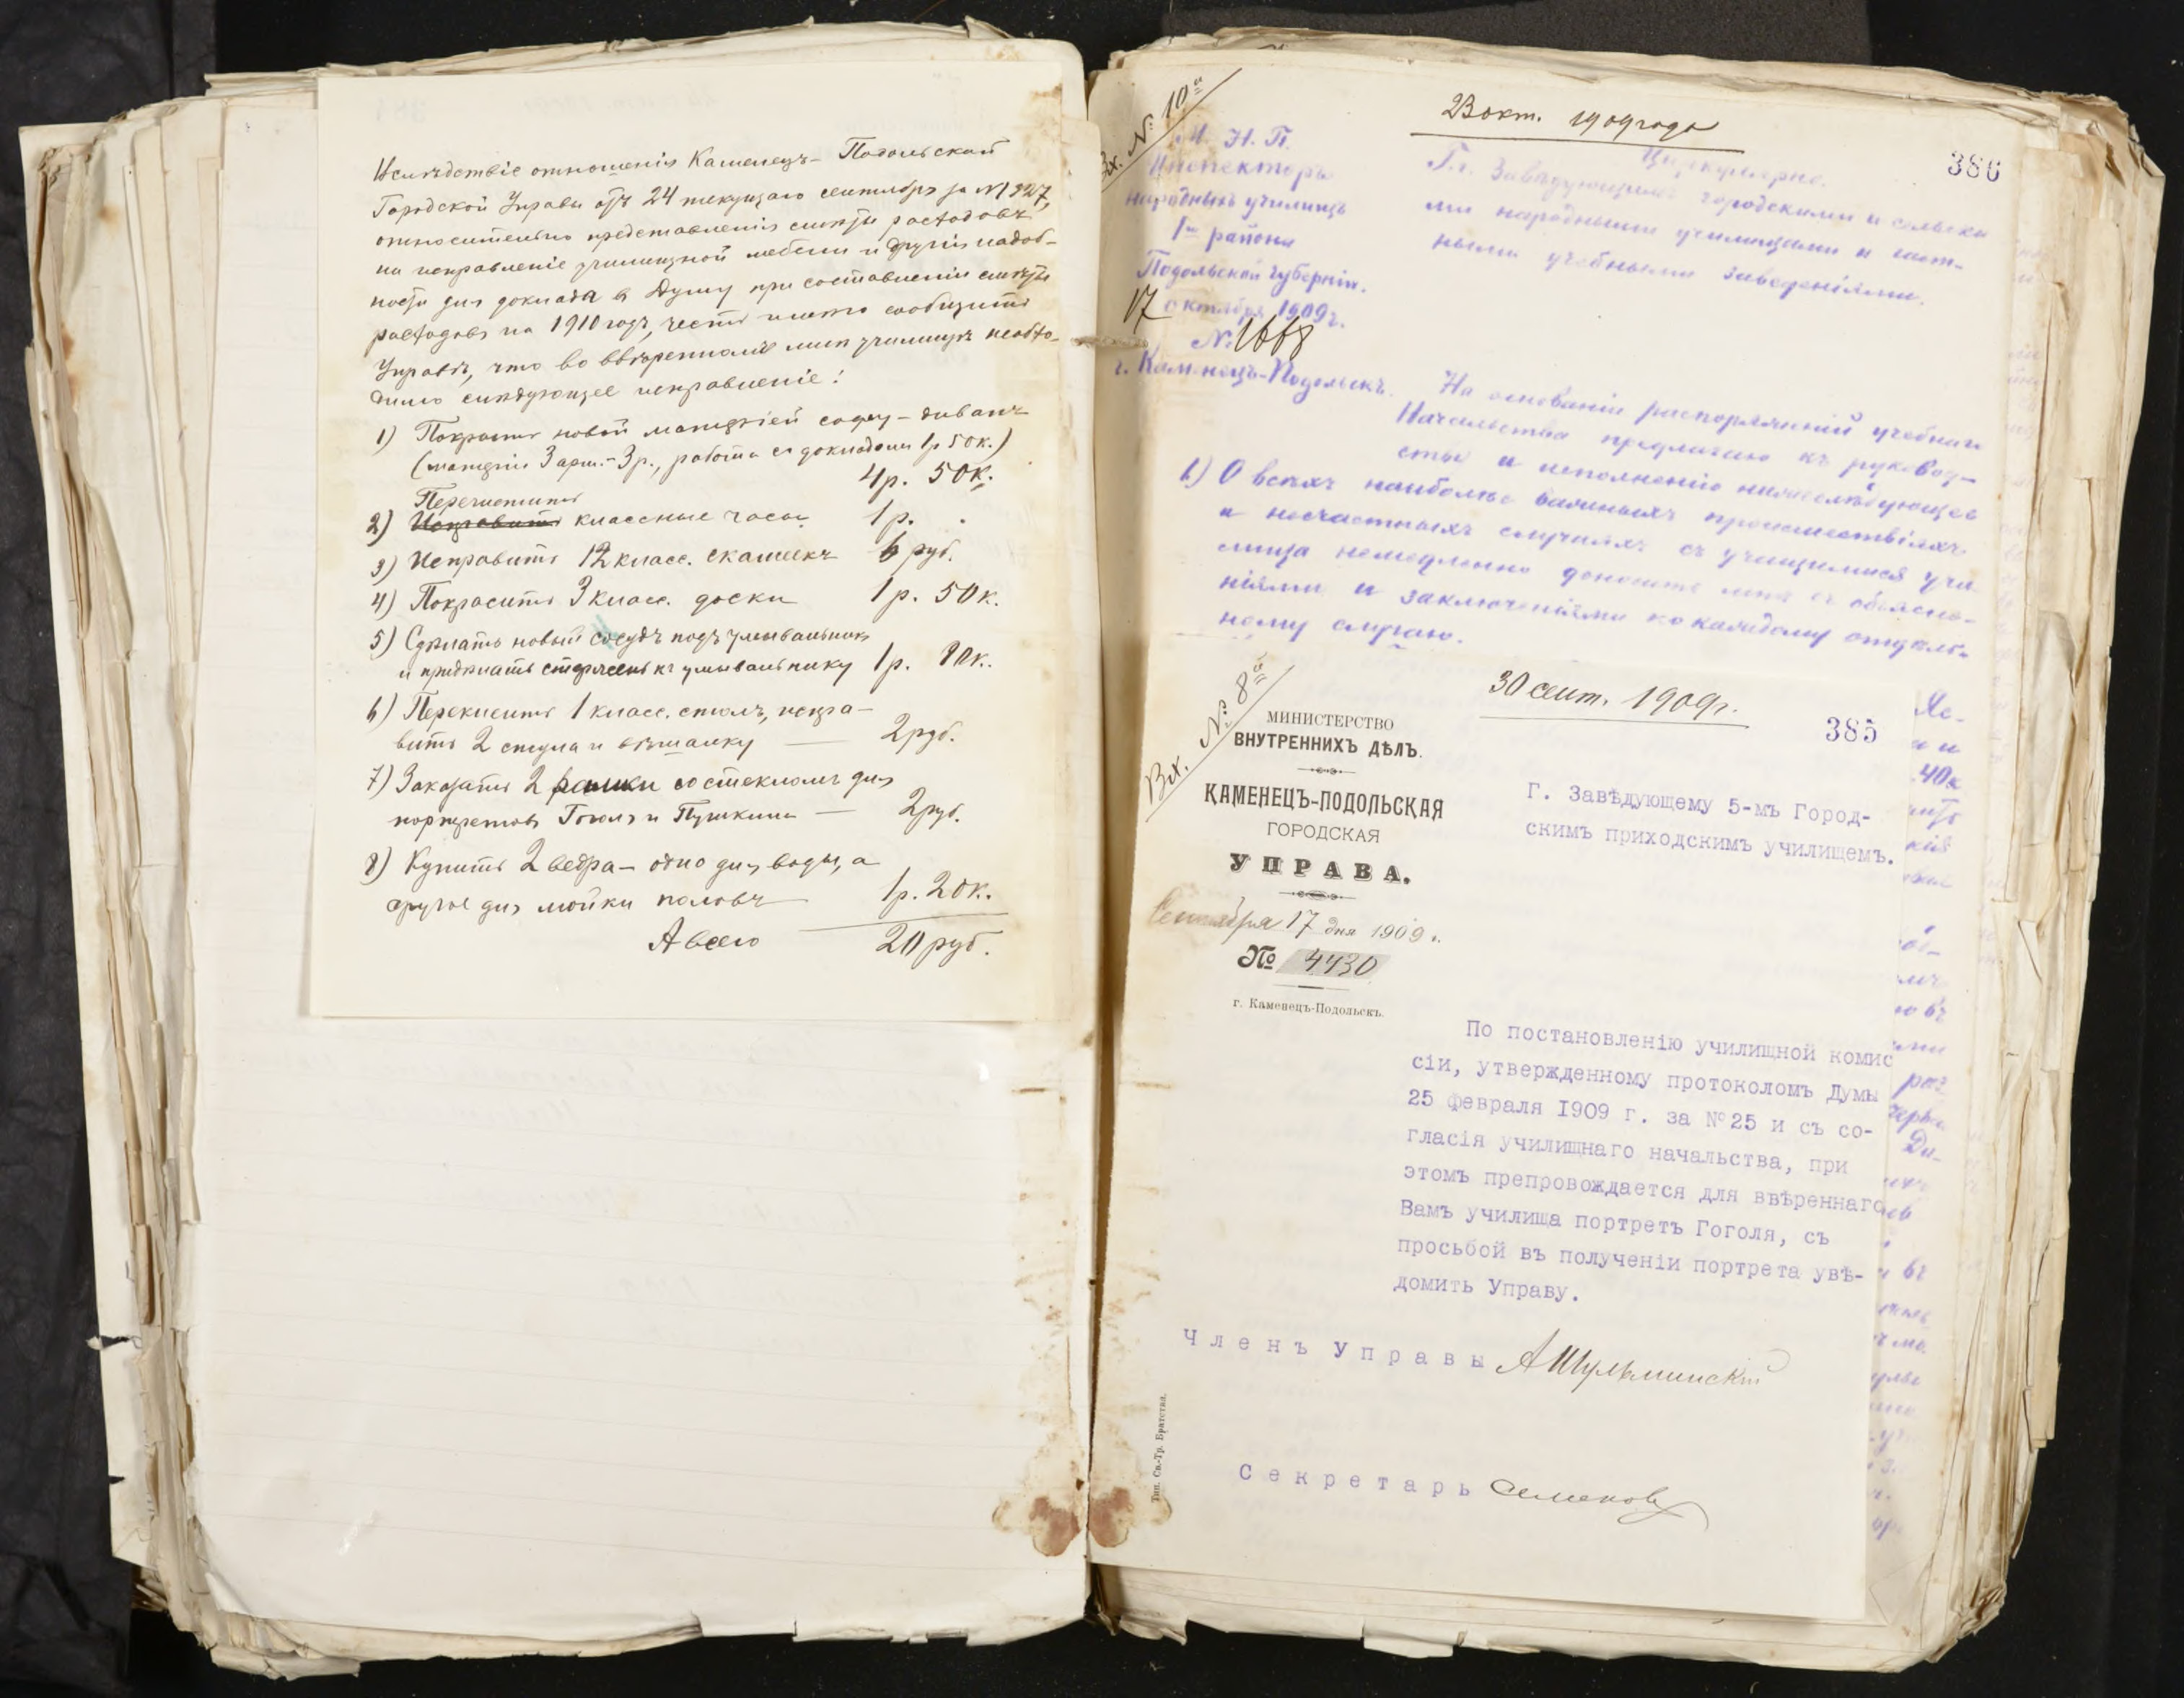 Вслѣдствіе отношенія Каменецъ-Подольской
Городской Управы отъ 24 текущаго сентября за №
относительно представленія смѣты расходовъ
на исправленіе училищной мебели и другія надоб-
ности для доклада в Думу при составленіи смѣты
расходовъ на 1910 годъ, честь имѣю сообщить
Управѣ, что во ввѣренномъ мнѣ училищѣ необхо-
димо слѣдующее исправленіе:
1) Покрыть новой матеріей софу - диванъ
(матерія 3 арш. - 3 р., работа съ 1 р 50 к.)
4 р. 50 к.
Перечистить
2) Исправить классные часы 1 р.
3) Исправить 12 класс. скамеекъ 6 руб.
4) Покрасить 3 класс. доски 1 р. 50 к.
5) Сдѣлать новый сосудъ подъ умывальникъ
и придѣлать стержень къ умывальнику 1 р. 80 к.
6) Переклеить 1 класс. столъ, испра-
вить 2 стула и вѣшалку — 2 руб.
7) Заказать 2 рамки со стекломъ для
портретовъ Гоголя и Пушкина — 2 руб.
8) Купить 2 ведра - одно для воды, а
другое для мойки половъ 1 р. 20 к.
А всего 20 руб.
Вх. № 10
23 окт. 1909 года
386
М. Н. П.
Инспекторъ
народныхъ училищъ
1го района
Подольской губерніи.
17 октября 1909 г.
№ 1668
г. Каменецъ-Подольскъ.
Циркулярно.
Г.г. Завѣдующимъ городскими и сельски
ми народными училищами и част-
ными учебными заведеніями.
На основаніи распоряженій учебнаго
Начальства предлагаю къ руковод-
ству и исполненію нижеслѣдующее
1) О всѣхъ наиболѣе важныхъ происшествіяхъ
и несчастныхъ случаяхъ съ учащимися учи-
лища немедленно доносить мнѣ съ объясне-
ніями и заключеніями по каждому отдѣль-
ному случаю.
Вх. № 8
30 сент. 1909 г.
385
МИНИСТЕРСТВО
ВНУТРЕННИХЪ ДѢЛЪ.
КАМЕНЕЦЪ-ПОДОЛЬСКАЯ
ГОРОДСКАЯ
УПРАВА.
Сентября 17 дня 1909 г.
№ 4430
г. Каменецъ-Подольскъ.
Г. Завѣдующему 5-мъ Город-
скимъ приходскимъ училищемъ.
По постановленію училищной комис
сіи, утвержденному протоколомъ Думы
25 февраля 1909 г. за №25 и съ со-
гласія училищнаго начальства, при
этомъ препровождается для ввѣреннаго
Вамъ училища портретъ Гоголя, съ
просьбой въ полученіи портрета увѣ-
домить Управу.
Членъ Управы
Секретарь Семеновъ
Тип. Св.-Тр. Братства.